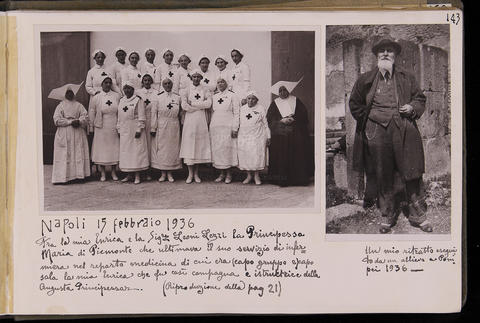 143
Napoli 15 febbraio 1936
Fra la mia Enrica e la Sig.ra Leoni Lezzi la Principessa
Maria di Piemonte che ultimava il suo servizio di infer-
miera nel reparto medicina di cui era capo gruppo e capo
sala la mia Enrica che fu così compagna e istruttrice della
Augusta Principessa.
(Riproduzione della pag 21)
Un mio ritratto esegui
to da un allievo a Pom
pei 1936 —